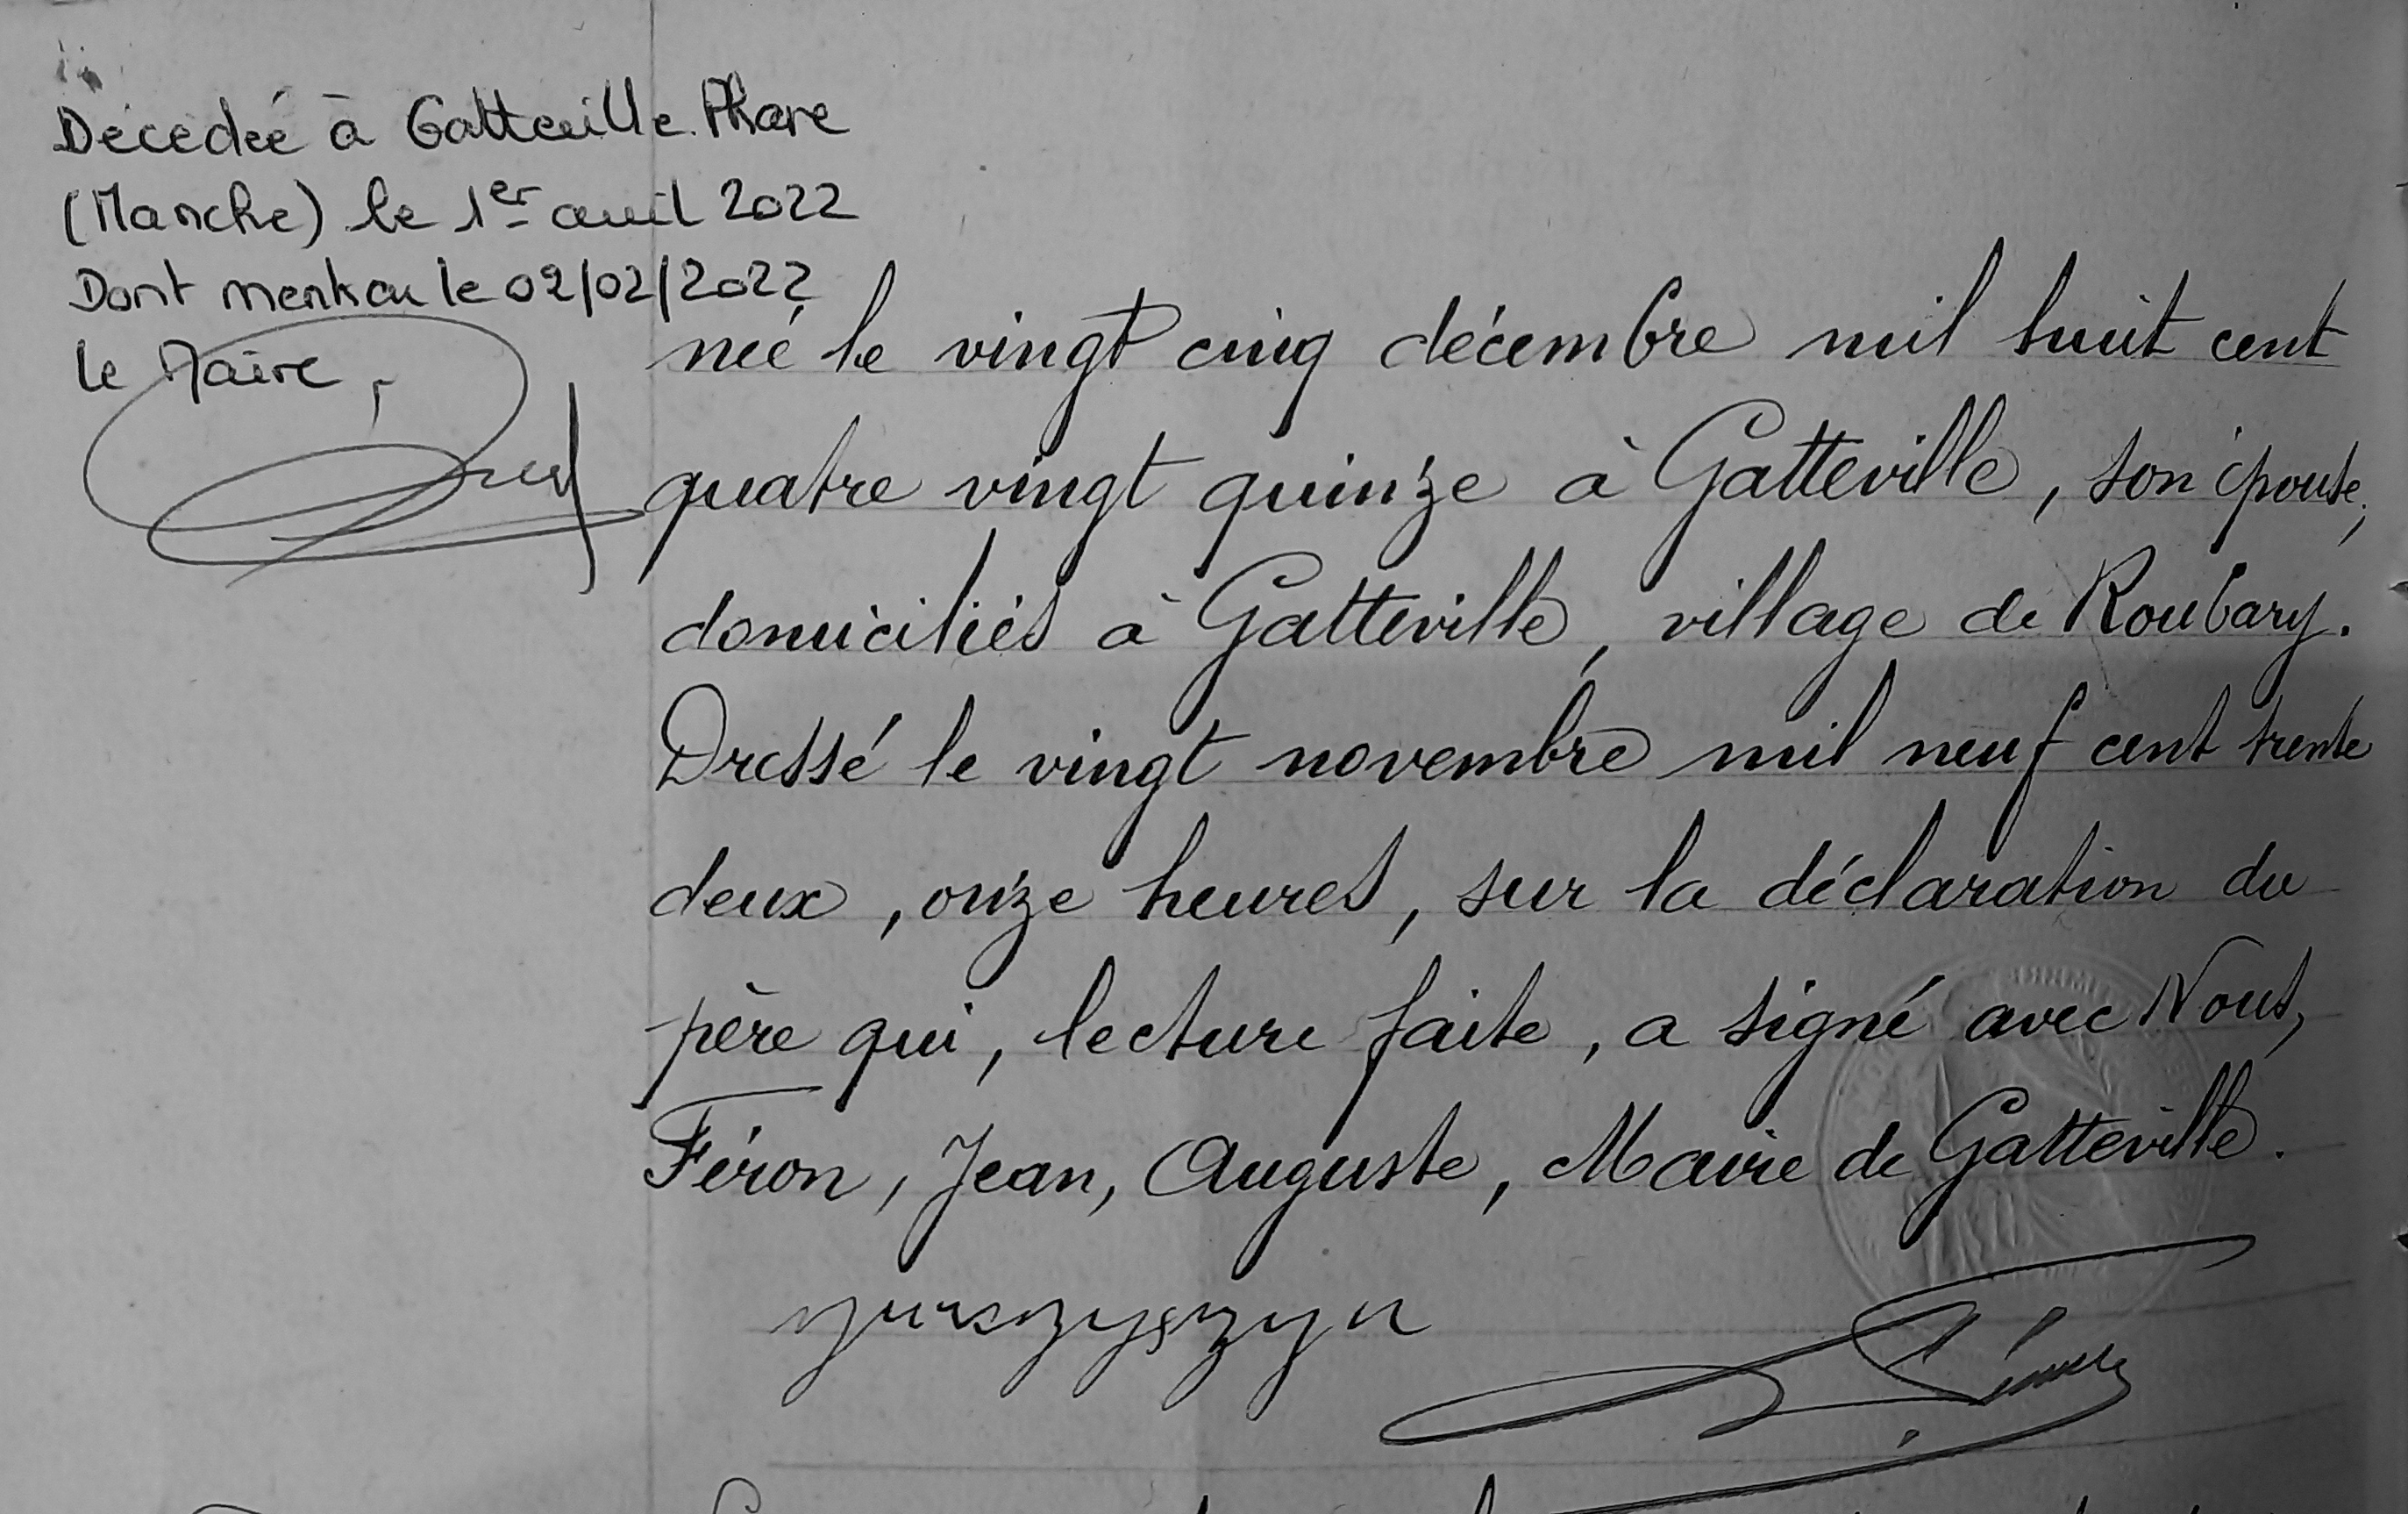 Décédée à Gatteville Phare
(Manche) le 1er avril 2022
Dont mention le 02/02/2022
le Maire,
née le vingt cinq décembre mil huit cent
quatre vingt quinze à Gatteville, son épouse,
domiciliés à Gatteville, village de Roubary.
Dressé le vingt novembre mil neuf cent trente
deux, onze heures, sur la déclaration du
père qui, lecture faite, a signé avec Nous,
Féron, Jean, Auguste, Maire de Gatteville.